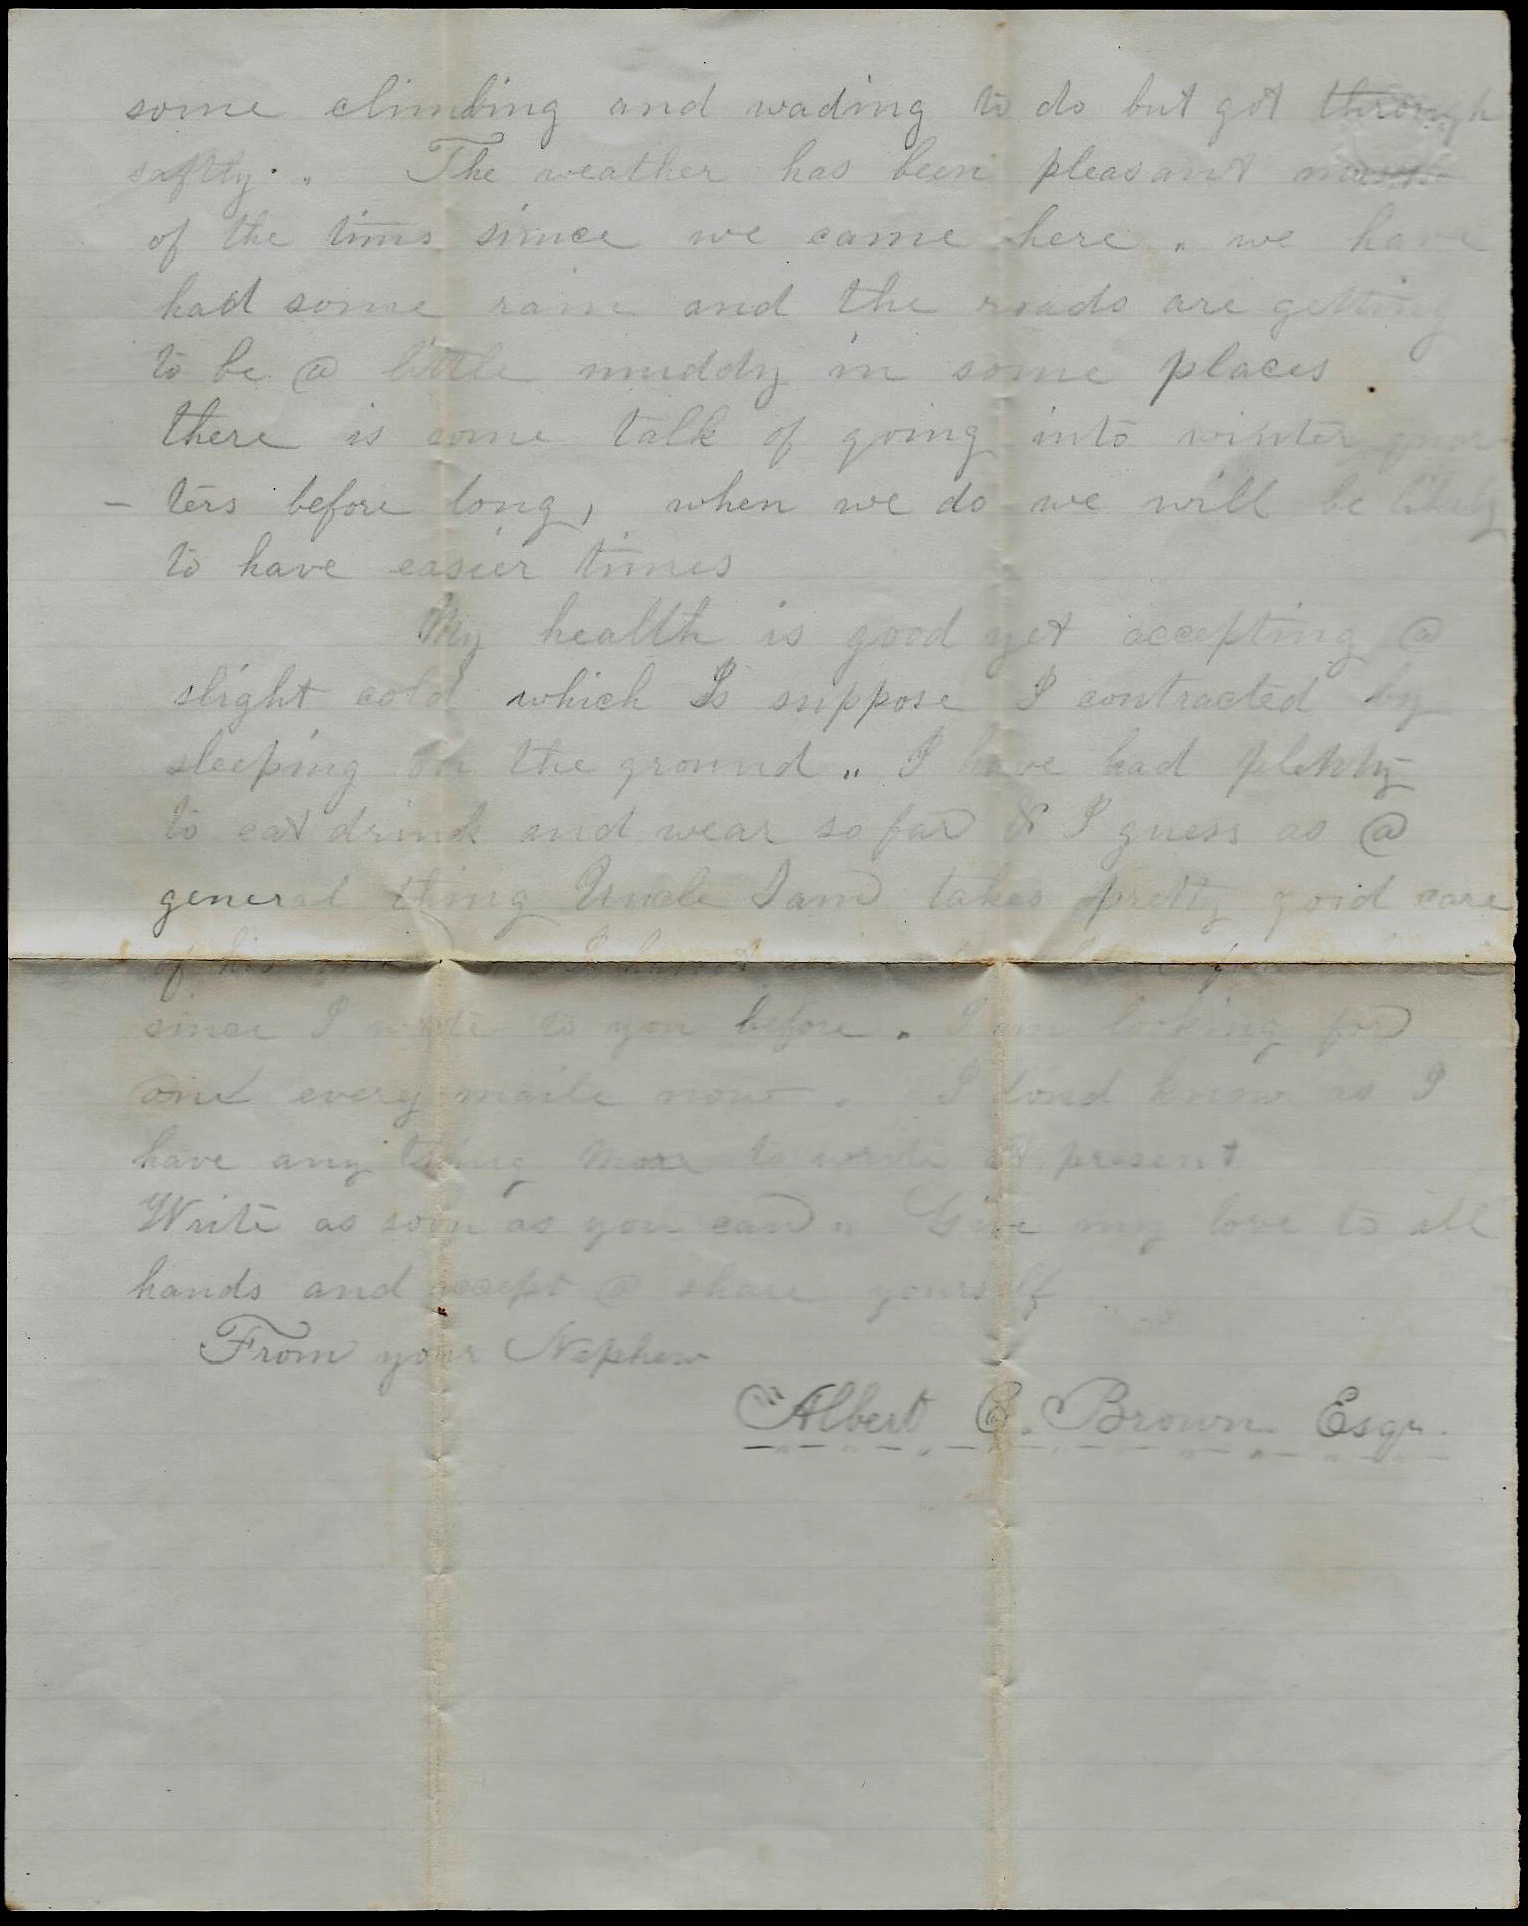 some climbing and wading to do but got through
saftly. The weather has been pleasant most
of the time since we came here. we have
had some rain and the roads are getting
to be @ little muddy in some places.
there is some talk of going into winter quar
- ters before long, when we do we will be likely
to have easier times
My health is good yet accepting @
slight cold which I suppose I contracted by
sleeping on the ground. I have had plenty
to eat drink and wear so far & I guess as @
general thing Uncle Sam takes pretty good care
of his I
since I wrote to you before. I am looking for
one every maile now. I dond know as I
have any thing more to write at present
Write as soon as you can. Give my love to all
hands and accept @ share yourself
From your Nephew
Albert C. Brown Esqr.